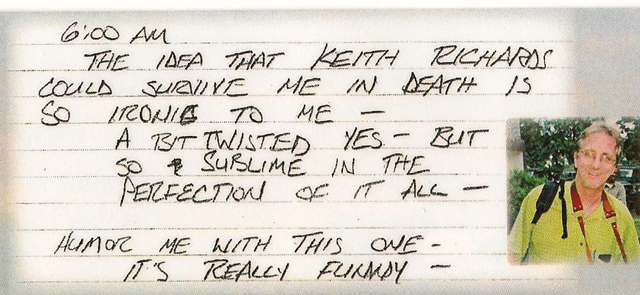 6:00 AM
THE IDEA THAT KEITH RICHARDS
COULD SURVIVE ME IN DEATH IS
SO IRONIC TO ME —
A BIT TWISTED YES — BUT
SO SUBLIME IN THE
PERFECTION OF IT ALL —
HUMOR ME WITH THIS ONE -
IT'S REALLY FUNNDY —